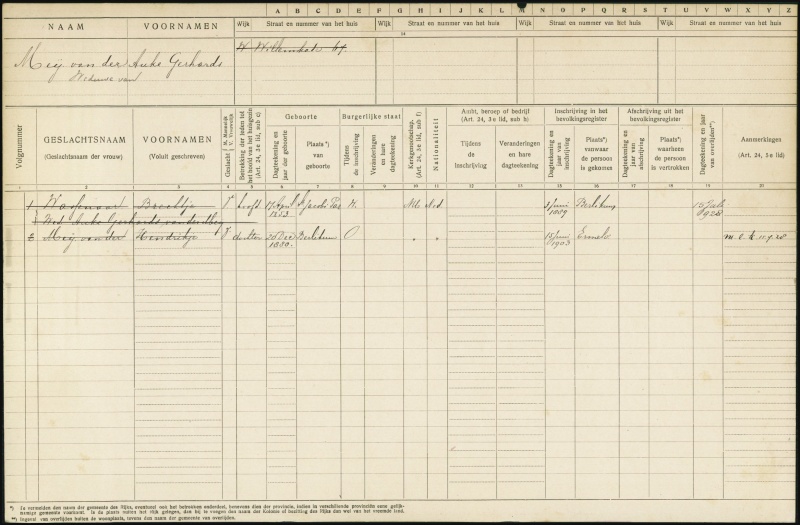 A B C D E F G H I J K L M N O P Q R S T U V W X Y Z
NAAM VOORNAMEN Wijk Straat en nummer van het huis Wijk Straat en nummer van het huis Wijk Straat en nummer van het huis Wijk Straat en nummer van het huis
Meij van der Anke Gerhards
Weduwe van
Volgnummer
GESLACHTSNAAM
(Geslachtsnaam der vrouw)
VOORNAMEN
(Voluit geschreven)
Geslacht M. Mannelijk V. Vrouwelijk
Betrekking der leden tot het hoofd van het huisgezin (Art. 24, 3e lid, sub c)
Geboorte
Dagteekening en jaar der geboorte
Plaats*) van geboorte
Burgerlijke staat
Tijdens de inschrijving
Veranderingen en hare dagteekening
Kerkgenootschap. (Art. 24, 3e lid, sub f)
Nationaliteit
Ambt, beroep of bedrijf
(Art. 24, 3e lid, sub h)
Tijdens de inschrijving
Veranderingen en hare dagteekening
Inschrijving in het bevolkingsregister
Dagteekening en jaar van inschrijving
Plaats*) vanwaar de persoon is gekomen
Afschrijving uit het bevolkingsregister
Dagteekening en jaar van afschrijving
Plaats*) waarheen de persoon is vertrokken
Dagteekening en jaar van overlijden**)
Aanmerkingen
(Art. 24, 5e lid)
1 2 3 4 5 6 7 8 9 10 11 12 13 14 15 16 17 18 19 20
1 Brechtje V hoofd 17 April 1853 St Jacobi Par W. N.H. Ned 3 Juni 1889 Berlikum
Wed. Anke Gerhards van der
2 Meij van der Hendrikje V dochter 20 Dec 1880 Berlikum O " " 15 Juni 1903 Ermelo
*) Te vermelden den naam der gemeente des Rijks, eventueel ook het betrokken onderdeel, benevens dien der provincie, indien in verschillende provinciën eene gelijknamige gemeente voorkomt. In de plaats buiten het Rijk gelegen, dan bij te voegen den naam der Kolonie of bezitting des Rijks dan wel van het vreemde land.
**) Ingeval van overlijden buiten de woonplaats, tevens den naam der gemeente van overlijden.